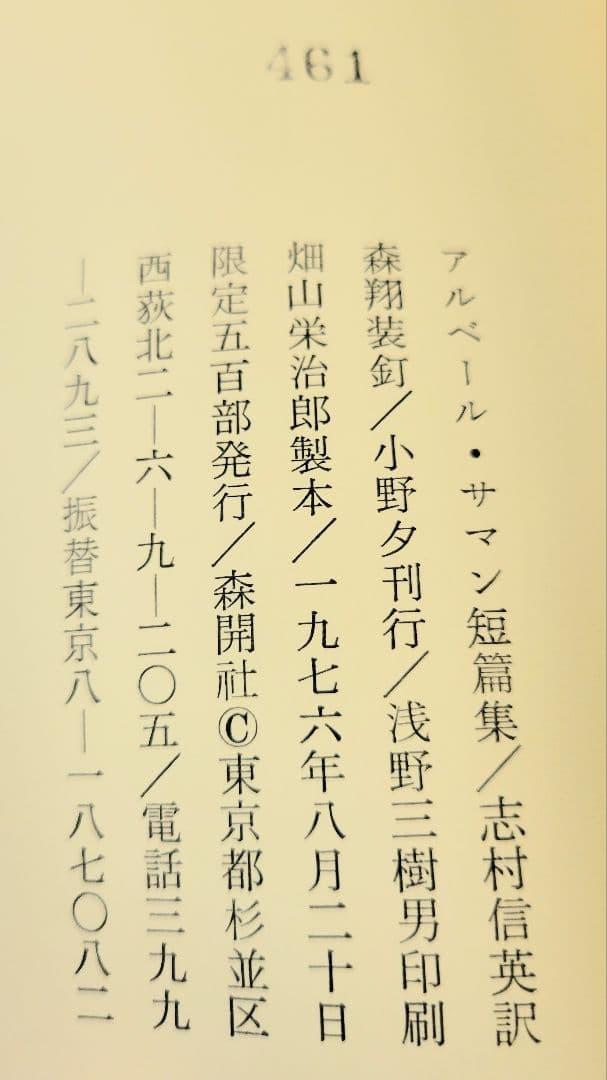 461
アルベール・サマン短篇集／志村信英訳
森翔装釘／小野夕刊行／浅野三樹男印刷
畑山栄治郎製本／一九七六年八月二十日
限定五百部発行／森開社©東京都杉並区
西荻北二―六―九―二〇五／電話三九九
―二八九三／振替東京八―一八七〇八二